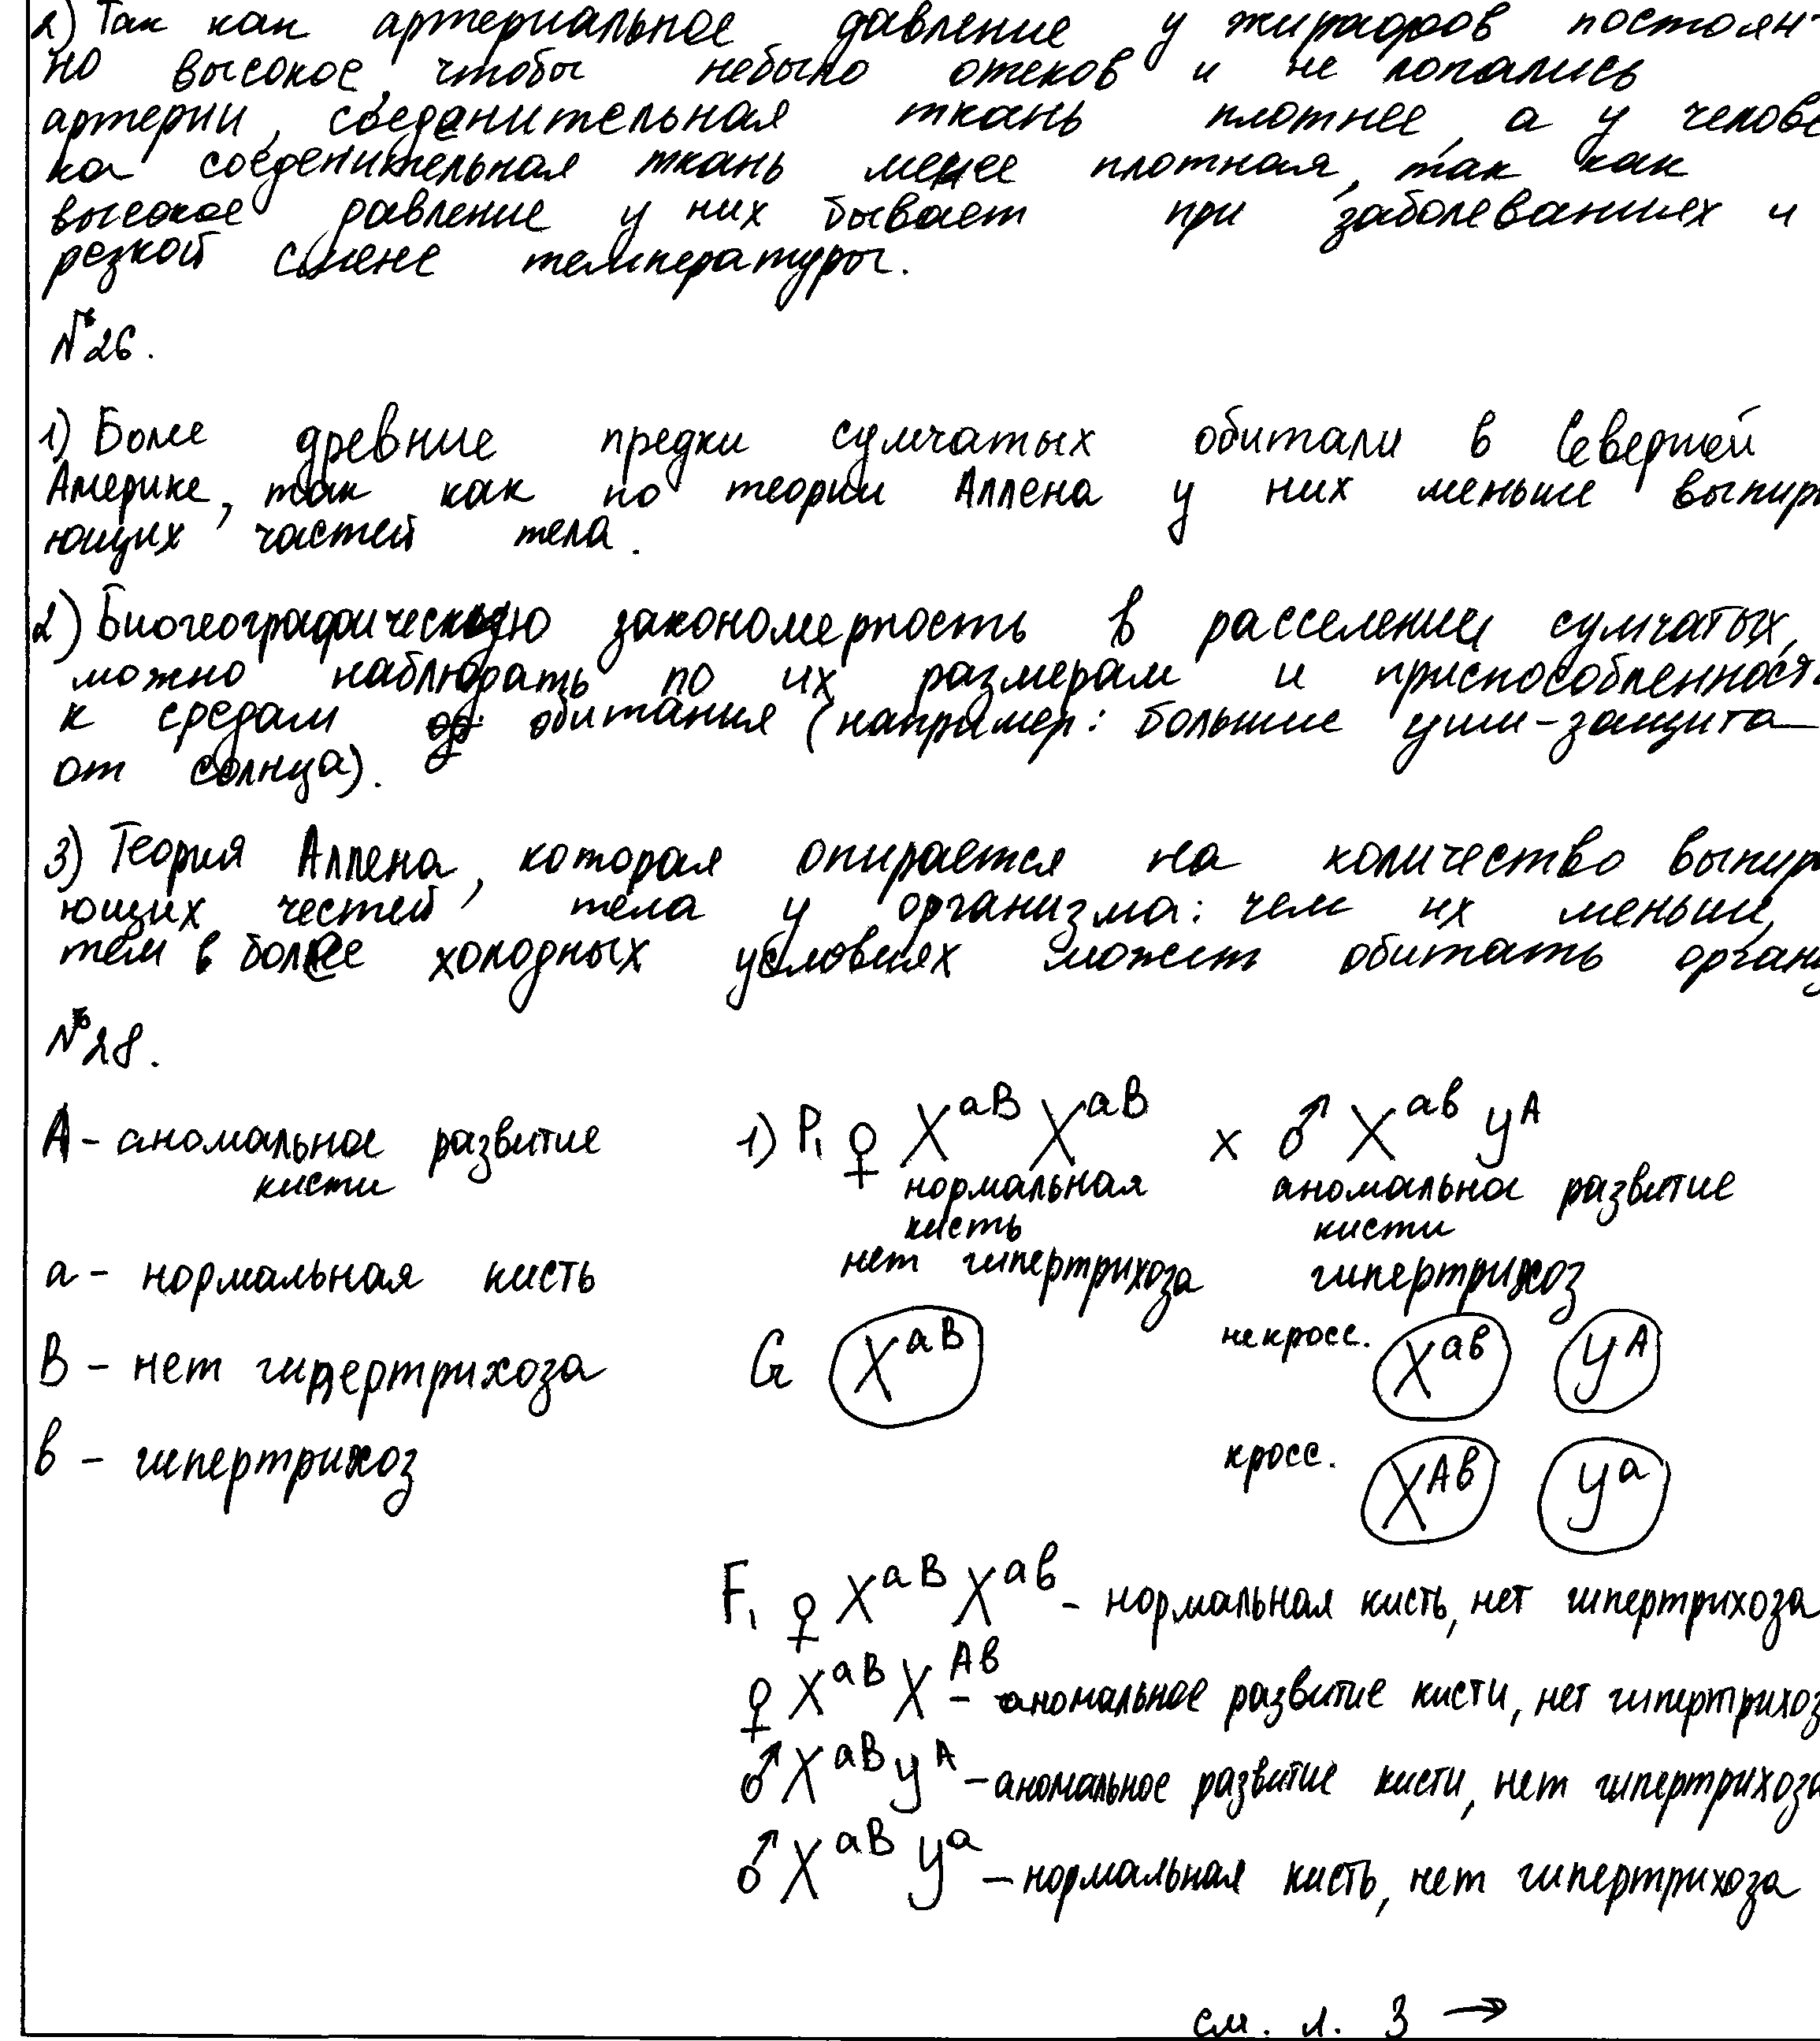 2) Так как артериальное давление у жирафов постоян-
но высокое, чтобы небыло отеков и не лопались
артерии, соеденительная ткань плотнее, а у челове
ка соеденительная ткань менее плотная, так как
высокое давление у них бывает при заболеваниях и
резкой смене температуры.
№26.
1) Более древние предки сумчатых обитали в Северной
Америке, так как по теории Аллена у них меньше выпир
ющих частей тела.
2) Биогеографическую закономерность в расселении сумчатых,
можно наблюдать по их размерам и приспособленност
к средам обитания (например: большие уши-защита
от солнца).
3) Теория Аллена, которая опирается на количество выпир
ющих честей тела у организма: чем их меньше,
тем в более холодных условиях может обитать орган
№28.
A - аномальное развитие
кисти
a - нормальная кисть
B - нет гипертрихоза
в - гипертрихоз
1) P₁ ♀ X^aB X^aB x ♂ X^aв У^A
нормальная аномальное развитие
кисть кисти
нет гипертрихоза гипертрихоз
G X^aB некросс. X^aв У^A
кросс. X^Aв У^a
F₁ ♀ X^aB X^aв - нормальная кисть, нет гипертрихоза
♀ X^aB X^Aв - аномальное развитие кисти, нет гипертрихоз
♂ X^aB У^A - аномальное развитие кисти, нет гипертрихоза
♂ X^aB У^a - нормальная кисть, нет гипертрихоза
см. л. 3 →